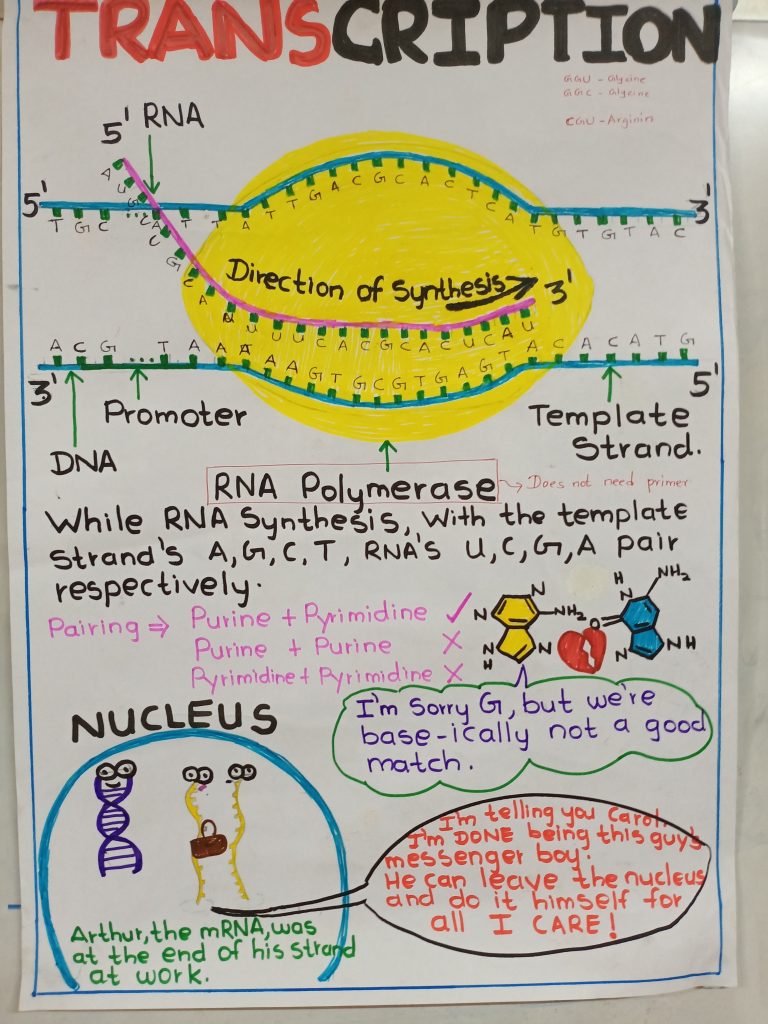 TRANSCRIPTION
GGU - Glycine
GGC - Glycine
CGU - Arginin
5' RNA
5' 3'
T G C ... A T T A T T G A C G C A C T C A T G T G T A C
A U G ... C C G C A A U U U C A C G C A C U C A U
Direction of Synthesis 3'
A C G ... T A A A A A G T G C G T G A G T A C A C A T G
3' 5'
Promoter
Template
Strand.
DNA
RNA Polymerase → Does not need primer
While RNA Synthesis, With the template
Strand's A, G, C, T, RNA's U, C, G, A pair
respectively.
Pairing ⇒ Purine + Pyrimidine ✓
Purine + Purine X
Pyrimidine + Pyrimidine X
N N N N H NH₂
H N NH₂ O N NH
I'm Sorry G, but we're
base-ically not a good
match.
NUCLEUS
I'm telling you Carol,
I'm DONE being this guy's
messenger boy.
He can leave the nucleus
and do it himself for
all I CARE!
Arthur, the mRNA, was
at the end of his strand
at work.